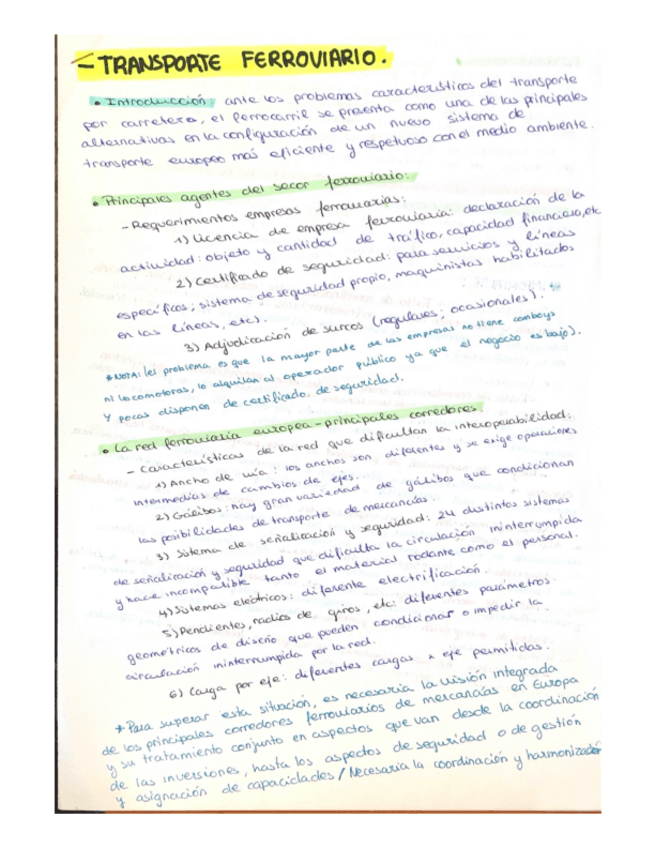 - TRANSPORTE FERROVIARIO.
• Introducción, ante los problemas característicos del transporte
por carretera, el ferrocarril se presenta como una de las principales
alternativas en la configuración de un nuevo sistema de
transporte europeo más eficiente y respetuoso con el medio ambiente.
• Principales agentes del secor ferroviario:
- Requerimientos empresas ferroviarias:
1) Licencia de empresa ferroviaria: declaración de la
actividad: objeto y cantidad de tráfico, capacidad financiera, etc
2) Certificado de seguridad: para servicios y líneas
específicos; sistema de seguridad propio, maquinistas habilitados
en las líneas, etc).
3) Adjudicación de surcos (regulares; ocasionales).
*NOTA: (el problema es que la mayor parte de las empresas no tiene comboys
ni locomotoras, lo alquilan al operador público ya que el negocio es bajo).
Y pocas disponen de certificado de seguridad.
• La red ferroviaria europea - principales corredores
- Características de la red que dificultan la interoperabilidad:
1) Ancho de vía: los anchos son diferentes y se exige operaciones
intermedias de cambios de ejes.
2) Gálibos: hay gran variedad de gálibos que condicionan
las posibilidades de transporte de mercancías.
3) Sistema de señalización y seguridad: 24 distintos sistemas
de señalización y seguridad que dificulta la circulación ininterrumpida
y hace incompatible tanto el material rodante como el personal.
4) Sistemas eléctricos: diferente electrificación.
5) Pendientes, radios de giros, etc: diferentes parámetros
geométricos de diseño que pueden condicionar o impedir la
circulación ininterrumpida por la red.
6) Carga por eje: diferentes cargas x eje permitidas.
*Para superar esta situación, es necesaria la visión integrada
de los principales corredores ferroviarios de mercancías en Europa
y su tratamiento conjunto en aspectos que van desde la coordinación
de las inversiones, hasta los aspectos de seguridad o de gestión
y asignación de capacidades / Necesaria la coordinación y harmonización